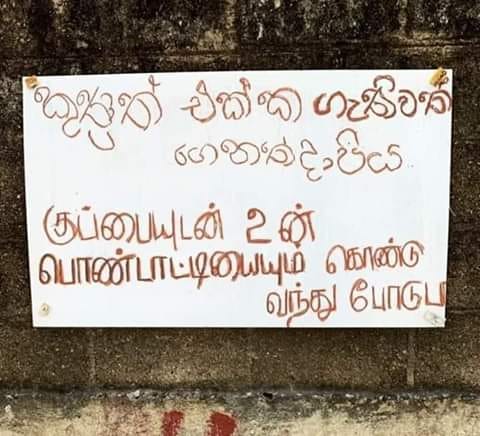 කුණුත් එක්ක ගෑනිවත්
ගෙනත් දාපිය
குப்பையுடன் உன்
பொண்டாட்டியையும் கொண்டு
வந்து போடுட